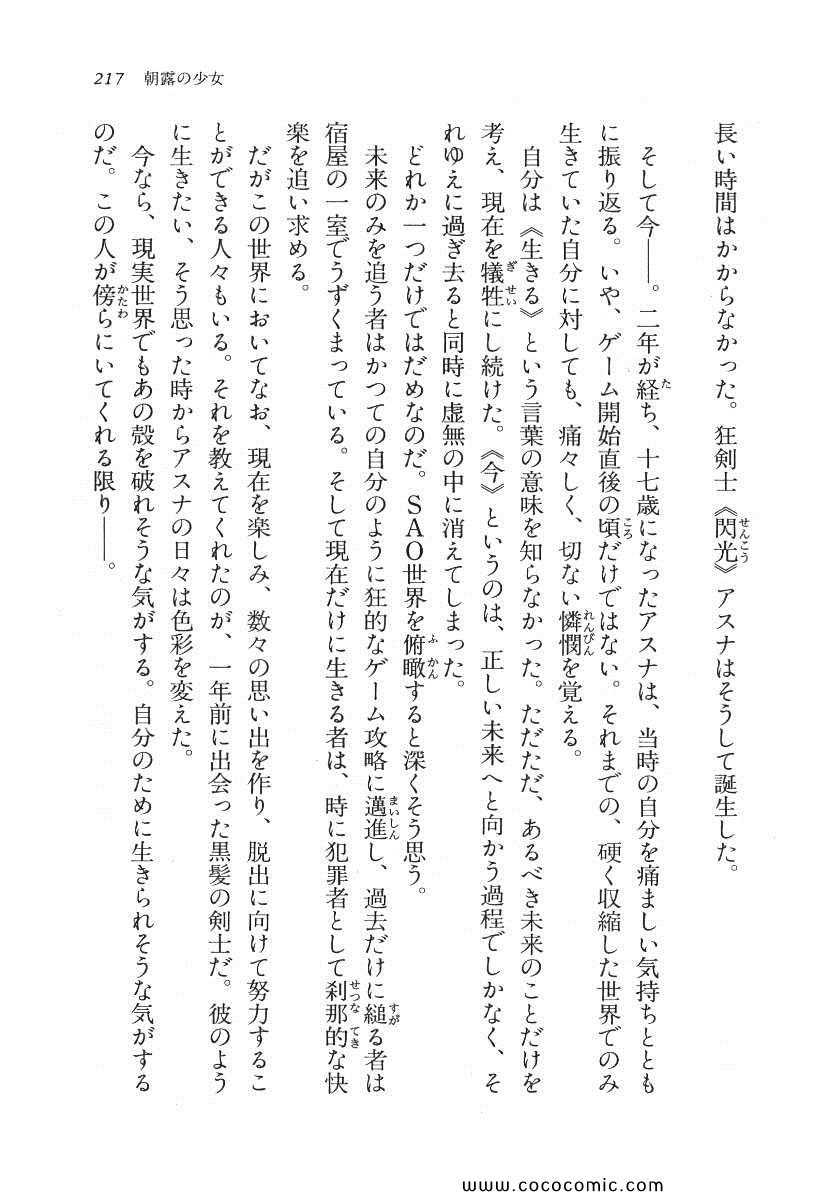 217 朝露の少女
長い時間はかからなかった。狂剣士《閃光》アスナはそうして誕生した。
そして今――。二年が経ち、十七歳になったアスナは、当時の自分を痛ましい気持ちととも
に振り返る。いや、ゲーム開始直後の頃だけではない。それまでの、硬く収縮した世界でのみ
生きていた自分に対しても、痛々しく、切ない憐憫を覚える。
自分は《生きる》という言葉の意味を知らなかった。ただただ、あるべき未来のことだけを
考え、現在を犠牲にし続けた。《今》というのは、正しい未来へと向かう過程でしかなく、そ
れゆえに過ぎ去ると同時に虚無の中に消えてしまった。
どれか一つだけではだめなのだ。ＳＡＯ世界を俯瞰すると深くそう思う。
未来のみを追う者はかつての自分のように狂的なゲーム攻略に邁進し、過去だけに縋る者は
宿屋の一室でうずくまっている。そして現在だけに生きる者は、時に犯罪者として刹那的な快
楽を追い求める。
だがこの世界においてなお、現在を楽しみ、数々の思い出を作り、脱出に向けて努力するこ
とができる人々もいる。それを教えてくれたのが、一年前に出会った黒髪の剣士だ。彼のよう
に生きたい、そう思った時からアスナの日々は色彩を変えた。
今なら、現実世界でもあの殻を破れそうな気がする。自分のために生きられそうな気がする
のだ。この人が傍らにいてくれる限り――。
www.cococomic.com